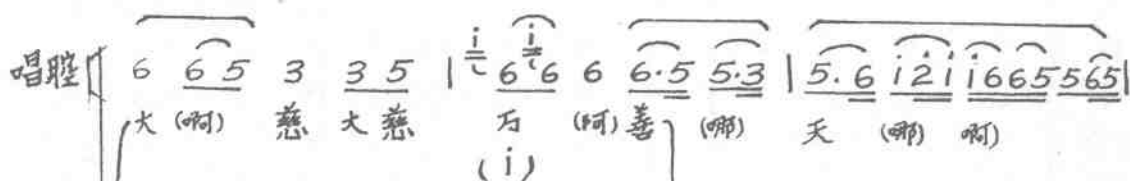 唱腔 6 6 5 3 3 5 | i 6 i 6 6 6·5 5·3 | 5. 6 i 2 i i 6 6 5 5 6 5 |
大 (啊) 慈 大 慈 万 (阿) 善 (哪) 天 (哪) 啊)
(i)